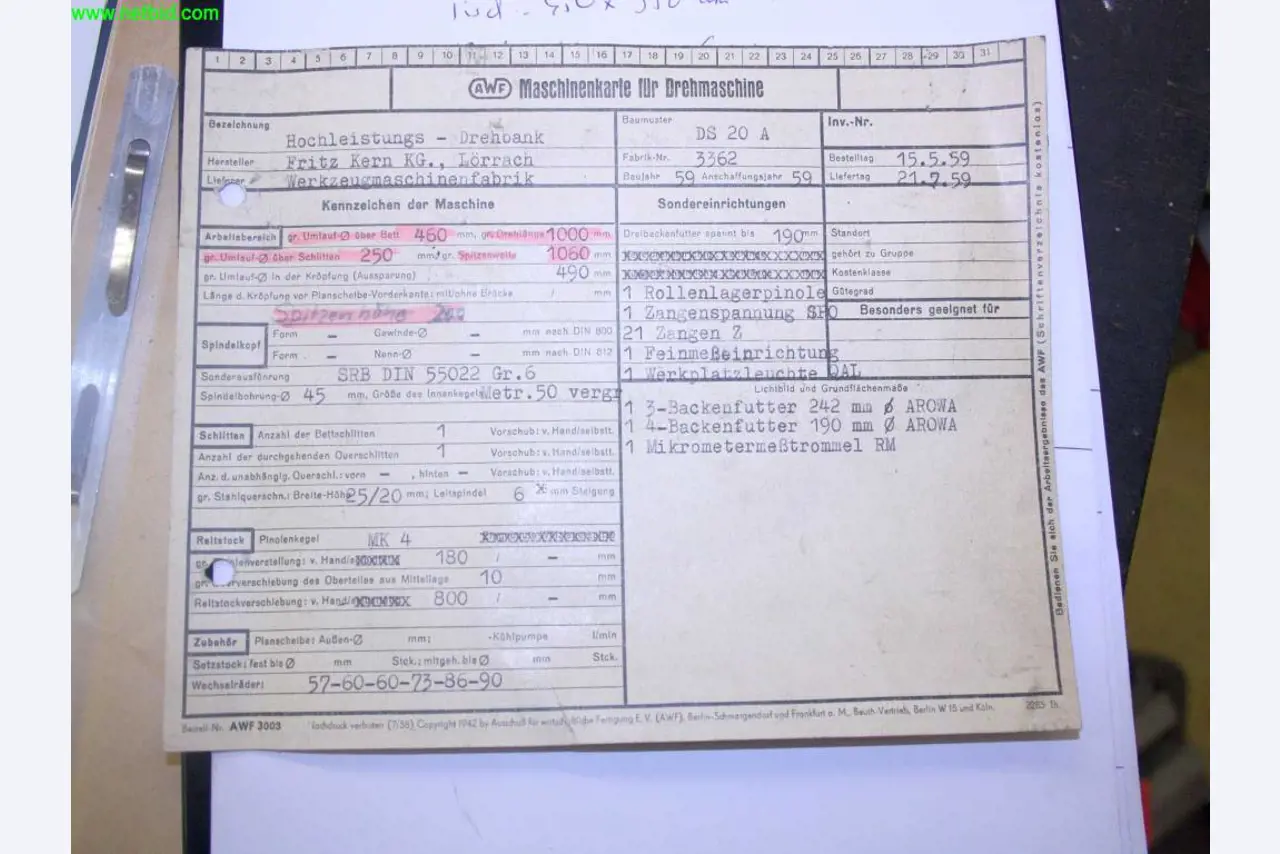 www.netbid.com
1 2 3 4 5 6 7 8 9 10 11 12 13 14 15 16 17 18 19 20 21 22 23 24 25 26 27 28 29 30 31
AWF Maschinenkarte für Drehmaschine
Bezeichnung Hochleistungs - Drehbank
Hersteller Fritz Kern KG., Lörrach
Lieferer Werkzeugmaschinenfabrik
Baumuster DS 20 A
Fabrik-Nr. 3362
Baujahr 59 Anschaffungsjahr 59
Inv.-Nr.
Bestelltag 15.5.59
Liefertag 21.7.59
Kennzeichen der Maschine
Arbeitsbereich gr. Umlauf-Ø über Bett 460 mm, gr. Drehlänge 1000 mm
gr. Umlauf-Ø über Schlitten 250 mm, gr. Spitzenweite 1060 mm
gr. Umlauf-Ø in der Kröpfung (Aussparung) 490 mm
Länge d. Kröpfung vor Planscheibe-Vorderkante: mit/ohne Brücke / mm
Spitzenhöhe
Spindelkopf Form – Gewinde-Ø – mm nach DIN 800
Form – Nenn-Ø – mm nach DIN 812
Sonderausführung SRB DIN 55022 Gr.6
Spindelbohrung-Ø 45 mm, Größe des Innenkegels Metr.50 vergr
Schlitten Anzahl der Bettschlitten 1 Vorschub: v. Hand/selbstt.
Anzahl der durchgehenden Querschlitten 1 Vorschub: v. Hand/selbstt.
Anz. d. unabhängig. Querschl.: vorn – , hinten – Vorschub: v. Hand/selbstt.
gr. Stahlquerschn.: Breite-Höhe 25/20 mm; Leitspindel 6 mm Steigung
Reitstock Pinolenkegel MK 4
gr. Pinolenverstellung: v. Hand/ 180 / – mm
gr. Querverschiebung des Oberteiles aus Mittellage 10 mm
Reitstockverschiebung: v. Hand/ 800 / – mm
Zubehör Planscheibe: Außen-Ø mm; -Kühlpumpe l/min
Setzstock: fest bis Ø mm Stck.; mitgeh. bis Ø mm Stck.
Wechselräder: 57-60-60-73-86-90
Sondereinrichtungen
Dreibackenfutter spannt bis 190 mm
1 Rollenlagerpinole
1 Zangenspannung SPO
21 Zangen Z
1 Feinmeßeinrichtung
1 Werkplatzleuchte DAL
Standort
gehört zu Gruppe
Kostenklasse
Gütegrad
Besonders geeignet für
Lichtbild und Grundflächenmaße
1 3-Backenfutter 242 mm Ø AROWA
1 4-Backenfutter 190 mm Ø AROWA
1 Mikrometermeßtrommel RM
Bedienen Sie sich der Arbeitsergebnisse des AWF (Schriftenverzeichnis kostenlos)
Bestell Nr. AWF 3003 Nachdruck verboten (7/58) Copyright 1942 by Ausschuß für wirtschaftliche Fertigung E. V. (AWF), Berlin-Schmargendorf und Frankfurt a. M., Beuth-Vertrieb, Berlin W 15 und Köln.